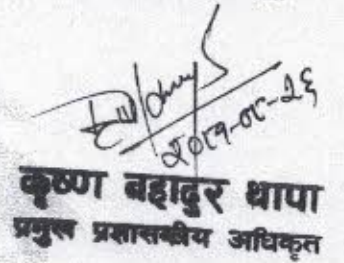 २०८१-०८-२६
कृष्ण बहादुर थापा
प्रमुख प्रशासकीय अधिकृत